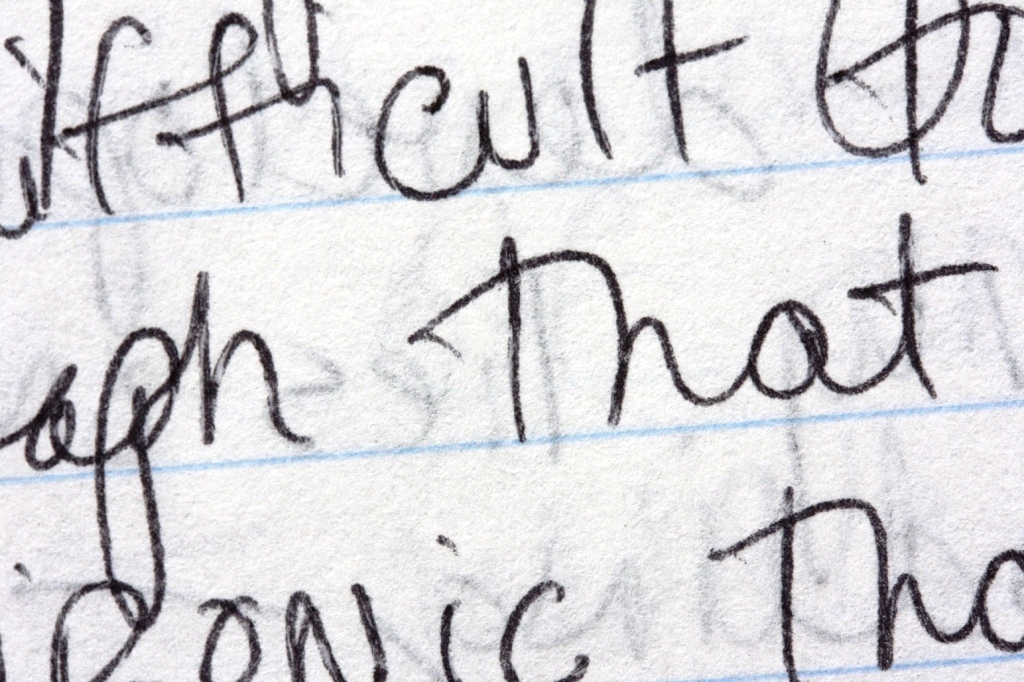 difficult to
ugh that
ironic tha